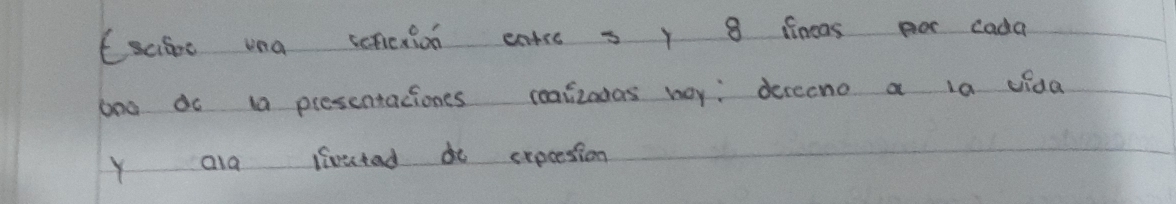 Escribe una reflexión entre 5 y 8 lineas por cada
una de la presentaciones realizadas hoy: derecho a la vida
y ala livertad de expresion